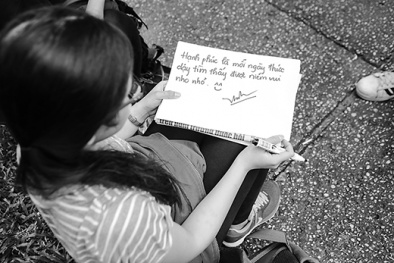 Hạnh phúc là mỗi ngày thức
dậy tìm thấy được niềm vui
nho nhỏ.